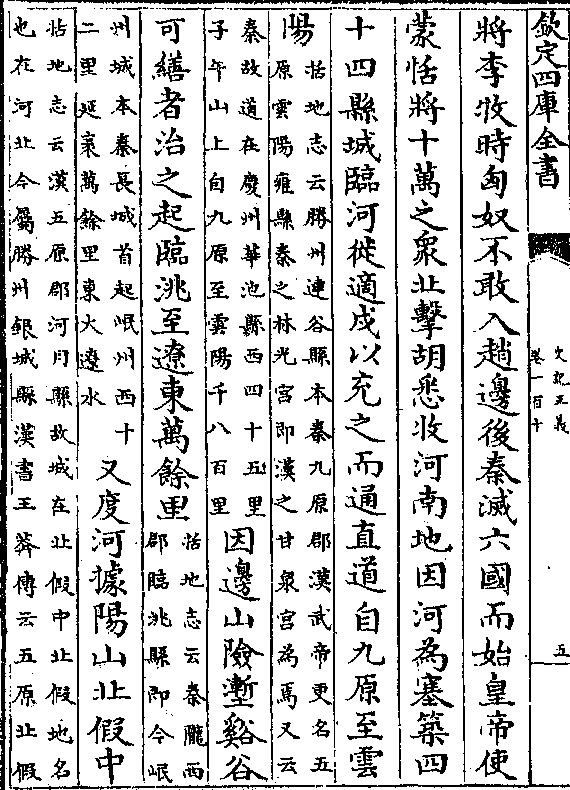 欽定四庫全書
史記正義
卷一百十
五
將李牧時匈奴不敢入趙邊後秦滅六國而始皇帝使
蒙恬將十萬之衆北擊胡悉收河南地因河為塞築四
十四縣城臨河徙適戍以充之而通直道自九原至雲
陽
括地志云勝州連谷縣本秦九原郡漢武帝更名五
原雲陽雍縣秦之林光宫即漢之甘泉宫為焉又云
秦故道在慶州華池縣西四十五里
子午山上自九原至雲陽千八百里
因邊山險壍谿谷
可繕者治之起臨洮至遼東萬餘里
括地志云秦隴西
郡臨洮縣即今岷
州城本秦長城首起岷州西十
二里延袤萬餘里東大遼水
又度河據陽山北假中
括地志云漢五原郡河月縣故城在北假中北假地名
也在河北今屬勝州銀城縣漢書王莽傳云五原北假